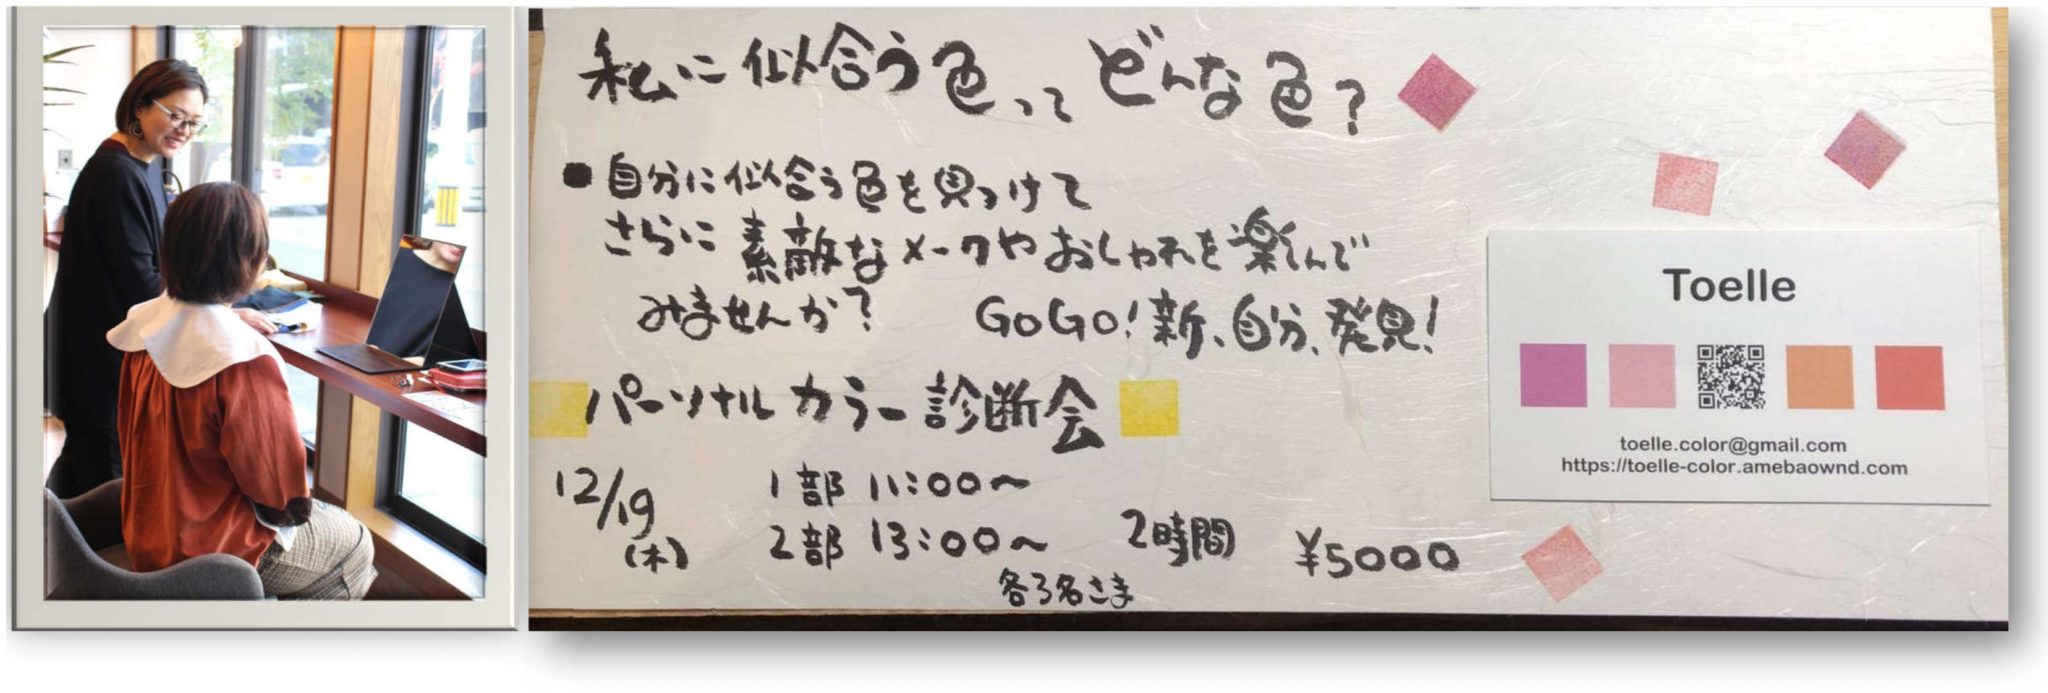 私に似合う色って どんな色?
●自分に似合う色を見つけて
さらに素敵なメークやおしゃれを楽しんで
みませんか? GoGo!新、自分、発見!
パーソナルカラー診断会
12/19
(木)
1部 11:00～
2部 13:00～ 2時間 ¥5000
各3名さま
Toelle
toelle.color@gmail.com
https://toelle-color.amebaownd.com